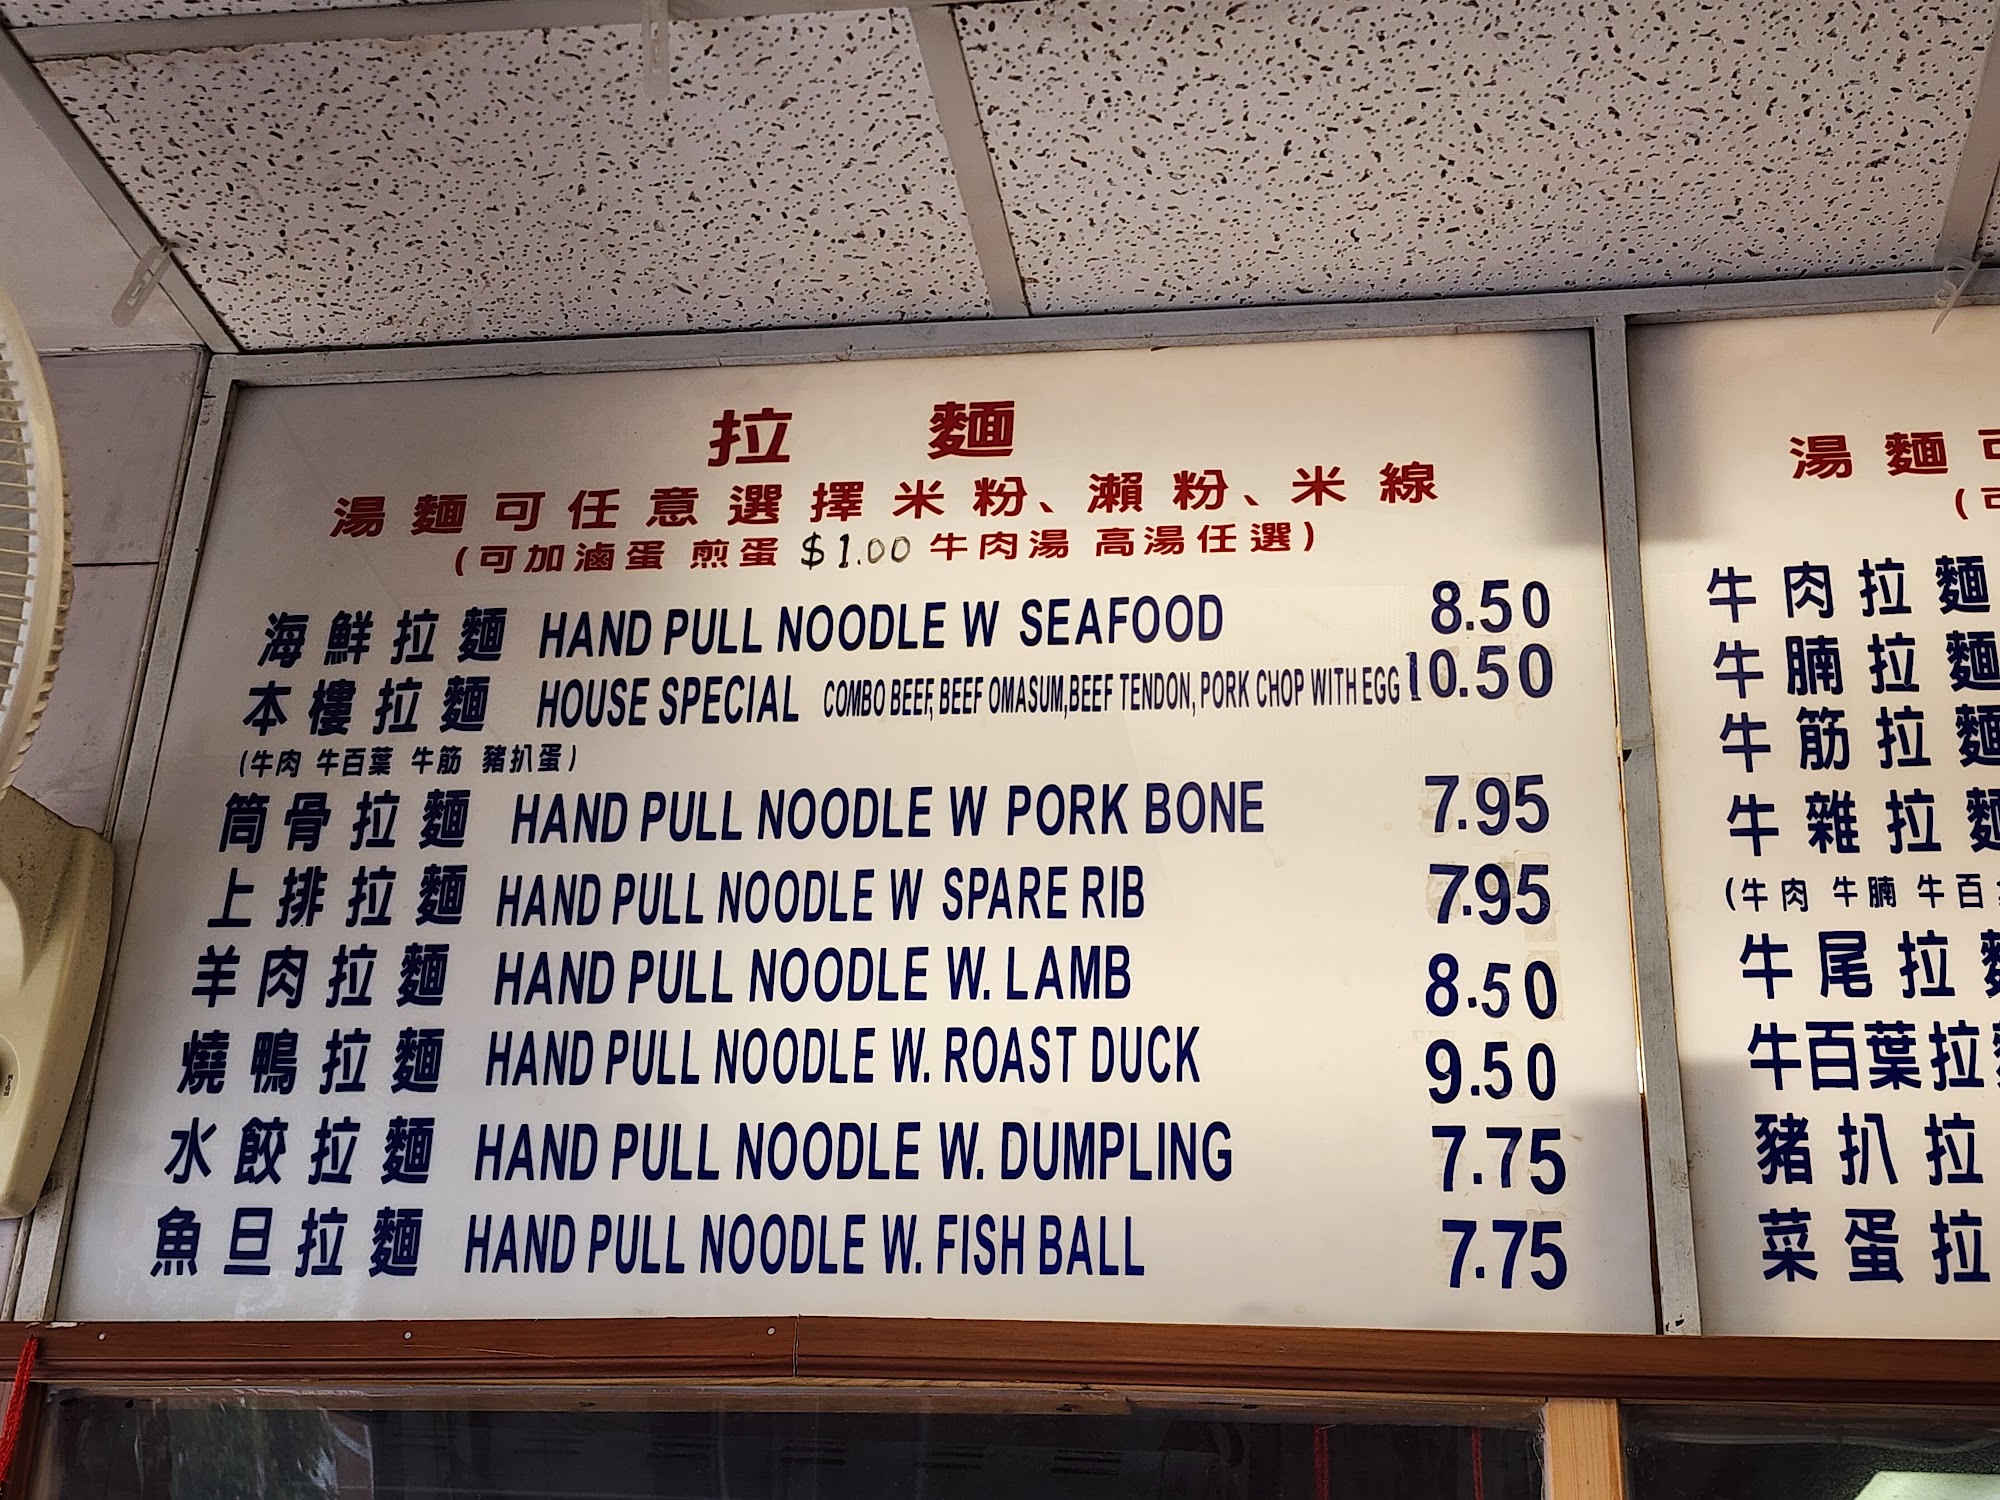 拉 麵
湯麵可任意選擇米粉、瀨粉、米線
(可加滷蛋 煎蛋 $1.00 牛肉湯 高湯任選)
海鮮拉麵 HAND PULL NOODLE W SEAFOOD 8.50
本樓拉麵 HOUSE SPECIAL COMBO BEEF, BEEF OMASUM,BEEF TENDON, PORK CHOP WITH EGG 10.50
(牛肉 牛百葉 牛筋 豬扒蛋)
筒骨拉麵 HAND PULL NOODLE W PORK BONE 7.95
上排拉麵 HAND PULL NOODLE W SPARE RIB 7.95
羊肉拉麵 HAND PULL NOODLE W. LAMB 8.50
燒鴨拉麵 HAND PULL NOODLE W. ROAST DUCK 9.50
水餃拉麵 HAND PULL NOODLE W. DUMPLING 7.75
魚旦拉麵 HAND PULL NOODLE W. FISH BALL 7.75
湯麵可
(可
牛肉拉麵
牛腩拉麵
牛筋拉麵
牛雜拉麵
(牛肉 牛腩 牛百
牛尾拉麵
牛百葉拉麵
豬扒拉
菜蛋拉